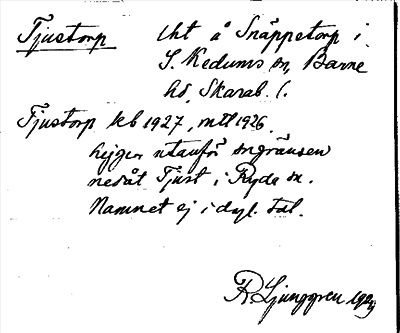 Tjustorp lht å Snäppetorp i
S. Kedums sn, Barne
hd, Skarab. l.
Tjustorp kb 1927, mtl 1926.
ligger utanför sngränsen
nedåt Tjust i Ryda sn.
Namnet ej i dyl. tal.
R Ljunggren 1929